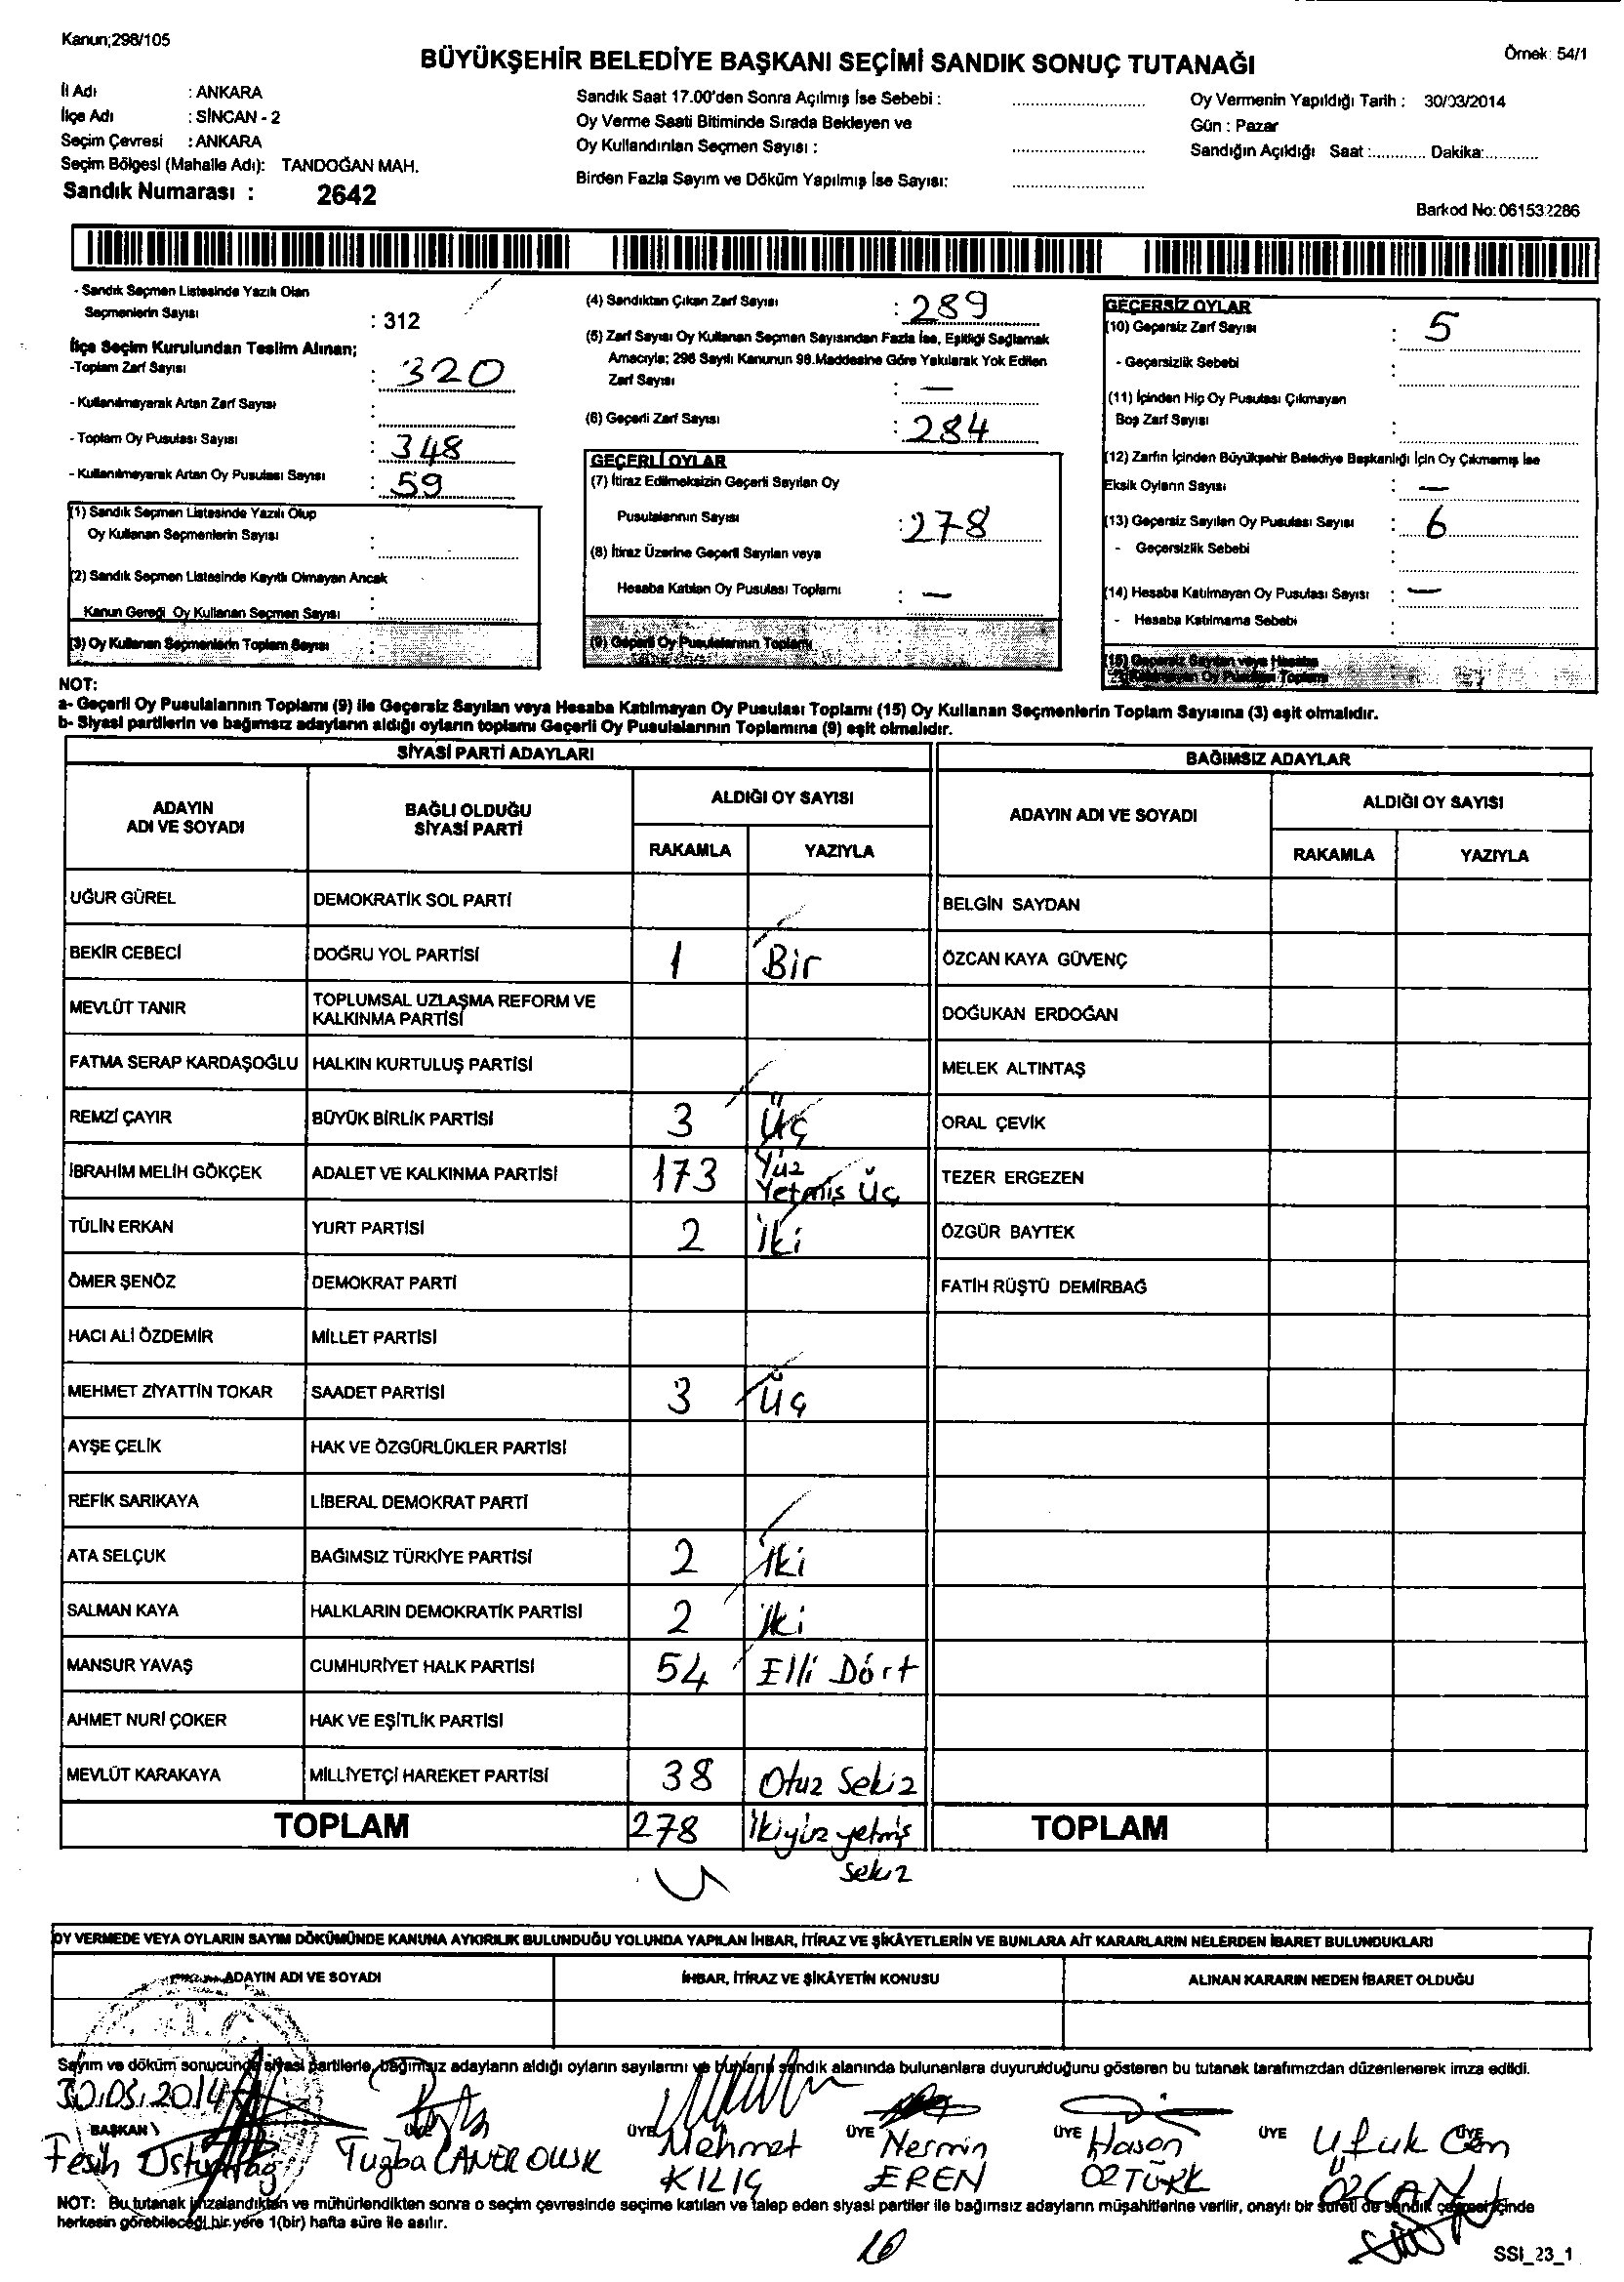 Kanun;298/105
BÜYÜKŞEHİR BELEDİYE BAŞKANI SEÇİMİ SANDIK SONUÇ TUTANAĞI
Örnek: 54/1
İl Adı : ANKARA
İlçe Adı : SİNCAN - 2
Seçim Çevresi : ANKARA
Seçim Bölgesi (Mahalle Adı): TANDOĞAN MAH.
Sandık Numarası : 2642
Sandık Saat 17.00'den Sonra Açılmış İse Sebebi :
Oy Verme Saati Bitiminde Sırada Bekleyen ve
Oy Kullandırılan Seçmen Sayısı :
Birden Fazla Sayım ve Döküm Yapılmış İse Sayısı:
Oy Vermenin Yapıldığı Tarih : 30/03/2014
Gün : Pazar
Sandığın Açıldığı Saat :........... Dakika:...........
Barkod No: 061532286
- Sandık Seçmen Listesinde Yazılı Olan
Seçmenlerin Sayısı : 312
İlçe Seçim Kurulundan Teslim Alınan;
-Toplam Zarf Sayısı : 320
- Kullanılmayarak Artan Zarf Sayısı :
- Toplam Oy Pusulası Sayısı : 348
- Kullanılmayarak Artan Oy Pusulası Sayısı : 59
(1) Sandık Seçmen Listesinde Yazılı Olup
Oy Kullanan Seçmenlerin Sayısı :
(2) Sandık Seçmen Listesinde Kayıtlı Olmayan Ancak
Kanun Gereği Oy Kullanan Seçmen Sayısı :
(3) Oy Kullanan Seçmenlerin Toplam Sayısı :
(4) Sandıktan Çıkan Zarf Sayısı : 289
(5) Zarf Sayısı Oy Kullanan Seçmen Sayısından Fazla İse, Eşitliği Sağlamak
Amacıyla; 298 Sayılı Kanunun 98.Maddesine Göre Yakılarak Yok Edilen
Zarf Sayısı : —
(6) Geçerli Zarf Sayısı : 284
GEÇERLİ OYLAR
(7) İtiraz Edilmeksizin Geçerli Sayılan Oy
Pusulalarının Sayısı : 278
(8) İtiraz Üzerine Geçerli Sayılan veya
Hesaba Katılan Oy Pusulası Toplamı : —
(9) Geçerli Oy Pusulalarının Toplamı :
GEÇERSİZ OYLAR
(10) Geçersiz Zarf Sayısı : 5
- Geçersizlik Sebebi :
(11) İçinden Hiç Oy Pusulası Çıkmayan
Boş Zarf Sayısı :
(12) Zarfın İçinden Büyükşehir Belediye Başkanlığı İçin Oy Çıkmamış İse
Eksik Oyların Sayısı : —
(13) Geçersiz Sayılan Oy Pusulası Sayısı : 6
- Geçersizlik Sebebi :
(14) Hesaba Katılmayan Oy Pusulası Sayısı : —
- Hesaba Katılmama Sebebi :
(15) Geçersiz Sayılan veya Hesaba
Katılmayan Oy Pusulası Toplamı
NOT:
a- Geçerli Oy Pusulalarının Toplamı (9) ile Geçersiz Sayılan veya Hesaba Katılmayan Oy Pusulası Toplamı (15) Oy Kullanan Seçmenlerin Toplam Sayısına (3) eşit olmalıdır.
b- Siyasi partilerin ve bağımsız adayların aldığı oyların toplamı Geçerli Oy Pusulalarının Toplamına (9) eşit olmalıdır.
SİYASİ PARTİ ADAYLARI
BAĞIMSIZ ADAYLAR
ADAYIN ADI VE SOYADI
BAĞLI OLDUĞU SİYASİ PARTİ
ALDIĞI OY SAYISI
RAKAMLA YAZIYLA
ADAYIN ADI VE SOYADI
ALDIĞI OY SAYISI
RAKAMLA YAZIYLA
UĞUR GÜREL DEMOKRATİK SOL PARTİ BELGİN SAYDAN
BEKİR CEBECİ DOĞRU YOL PARTİSİ 1 Bir ÖZCAN KAYA GÜVENÇ
MEVLÜT TANIR TOPLUMSAL UZLAŞMA REFORM VE KALKINMA PARTİSİ DOĞUKAN ERDOĞAN
FATMA SERAP KARDAŞOĞLU HALKIN KURTULUŞ PARTİSİ MELEK ALTINTAŞ
REMZİ ÇAYIR BÜYÜK BİRLİK PARTİSİ 3 Üç ORAL ÇEVİK
İBRAHİM MELİH GÖKÇEK ADALET VE KALKINMA PARTİSİ 173 Yüz Yetmiş Üç TEZER ERGEZEN
TÜLİN ERKAN YURT PARTİSİ 2 İki ÖZGÜR BAYTEK
ÖMER ŞENÖZ DEMOKRAT PARTİ FATİH RÜŞTÜ DEMİRBAĞ
HACI ALİ ÖZDEMİR MİLLET PARTİSİ
MEHMET ZİYATTİN TOKAR SAADET PARTİSİ 3 Üç
AYŞE ÇELİK HAK VE ÖZGÜRLÜKLER PARTİSİ
REFİK SARIKAYA LİBERAL DEMOKRAT PARTİ
ATA SELÇUK BAĞIMSIZ TÜRKİYE PARTİSİ 2 İki
SALMAN KAYA HALKLARIN DEMOKRATİK PARTİSİ 2 İki
MANSUR YAVAŞ CUMHURİYET HALK PARTİSİ 54 Elli Dört
AHMET NURİ ÇOKER HAK VE EŞİTLİK PARTİSİ
MEVLÜT KARAKAYA MİLLİYETÇİ HAREKET PARTİSİ 38 Otuz Sekiz
TOPLAM 278 İkiyüz yetmiş sekiz TOPLAM
OY VERMEDE VEYA OYLARIN SAYIM DÖKÜMÜNDE KANUNA AYKIRILIK BULUNDUĞU YOLUNDA YAPILAN İHBAR, İTİRAZ VE ŞİKÂYETLERİN VE BUNLARA AİT KARARLARIN NELERDEN İBARET BULUNDUKLARI
ADAYIN ADI VE SOYADI İHBAR, İTİRAZ VE ŞİKÂYETİN KONUSU ALINAN KARARIN NEDEN İBARET OLDUĞU
Sayım ve döküm sonucunda siyasi partilerle, bağımsız adayların aldığı oyların sayılarını ve bunların sandık alanında bulunanlara duyurulduğunu gösteren bu tutanak tarafımızdan düzenlenerek imza edildi.
30.03.2014
BAŞKAN ÜYE ÜYE ÜYE ÜYE ÜYE
Fesih Tuğba Mehmet KILIÇ Nermin EREN Hasan ÖZTÜRK Ufuk Can ÖZCAN
NOT: Bu tutanak imzalandıktan ve mühürlendikten sonra o seçim çevresinde seçime katılan ve talep eden siyasi partiler ile bağımsız adayların müşahitlerine verilir, onaylı bir sureti de sandık çevresi içinde
herkesin görebileceği bir yere 1(bir) hafta süre ile asılır.
SSI_23_1